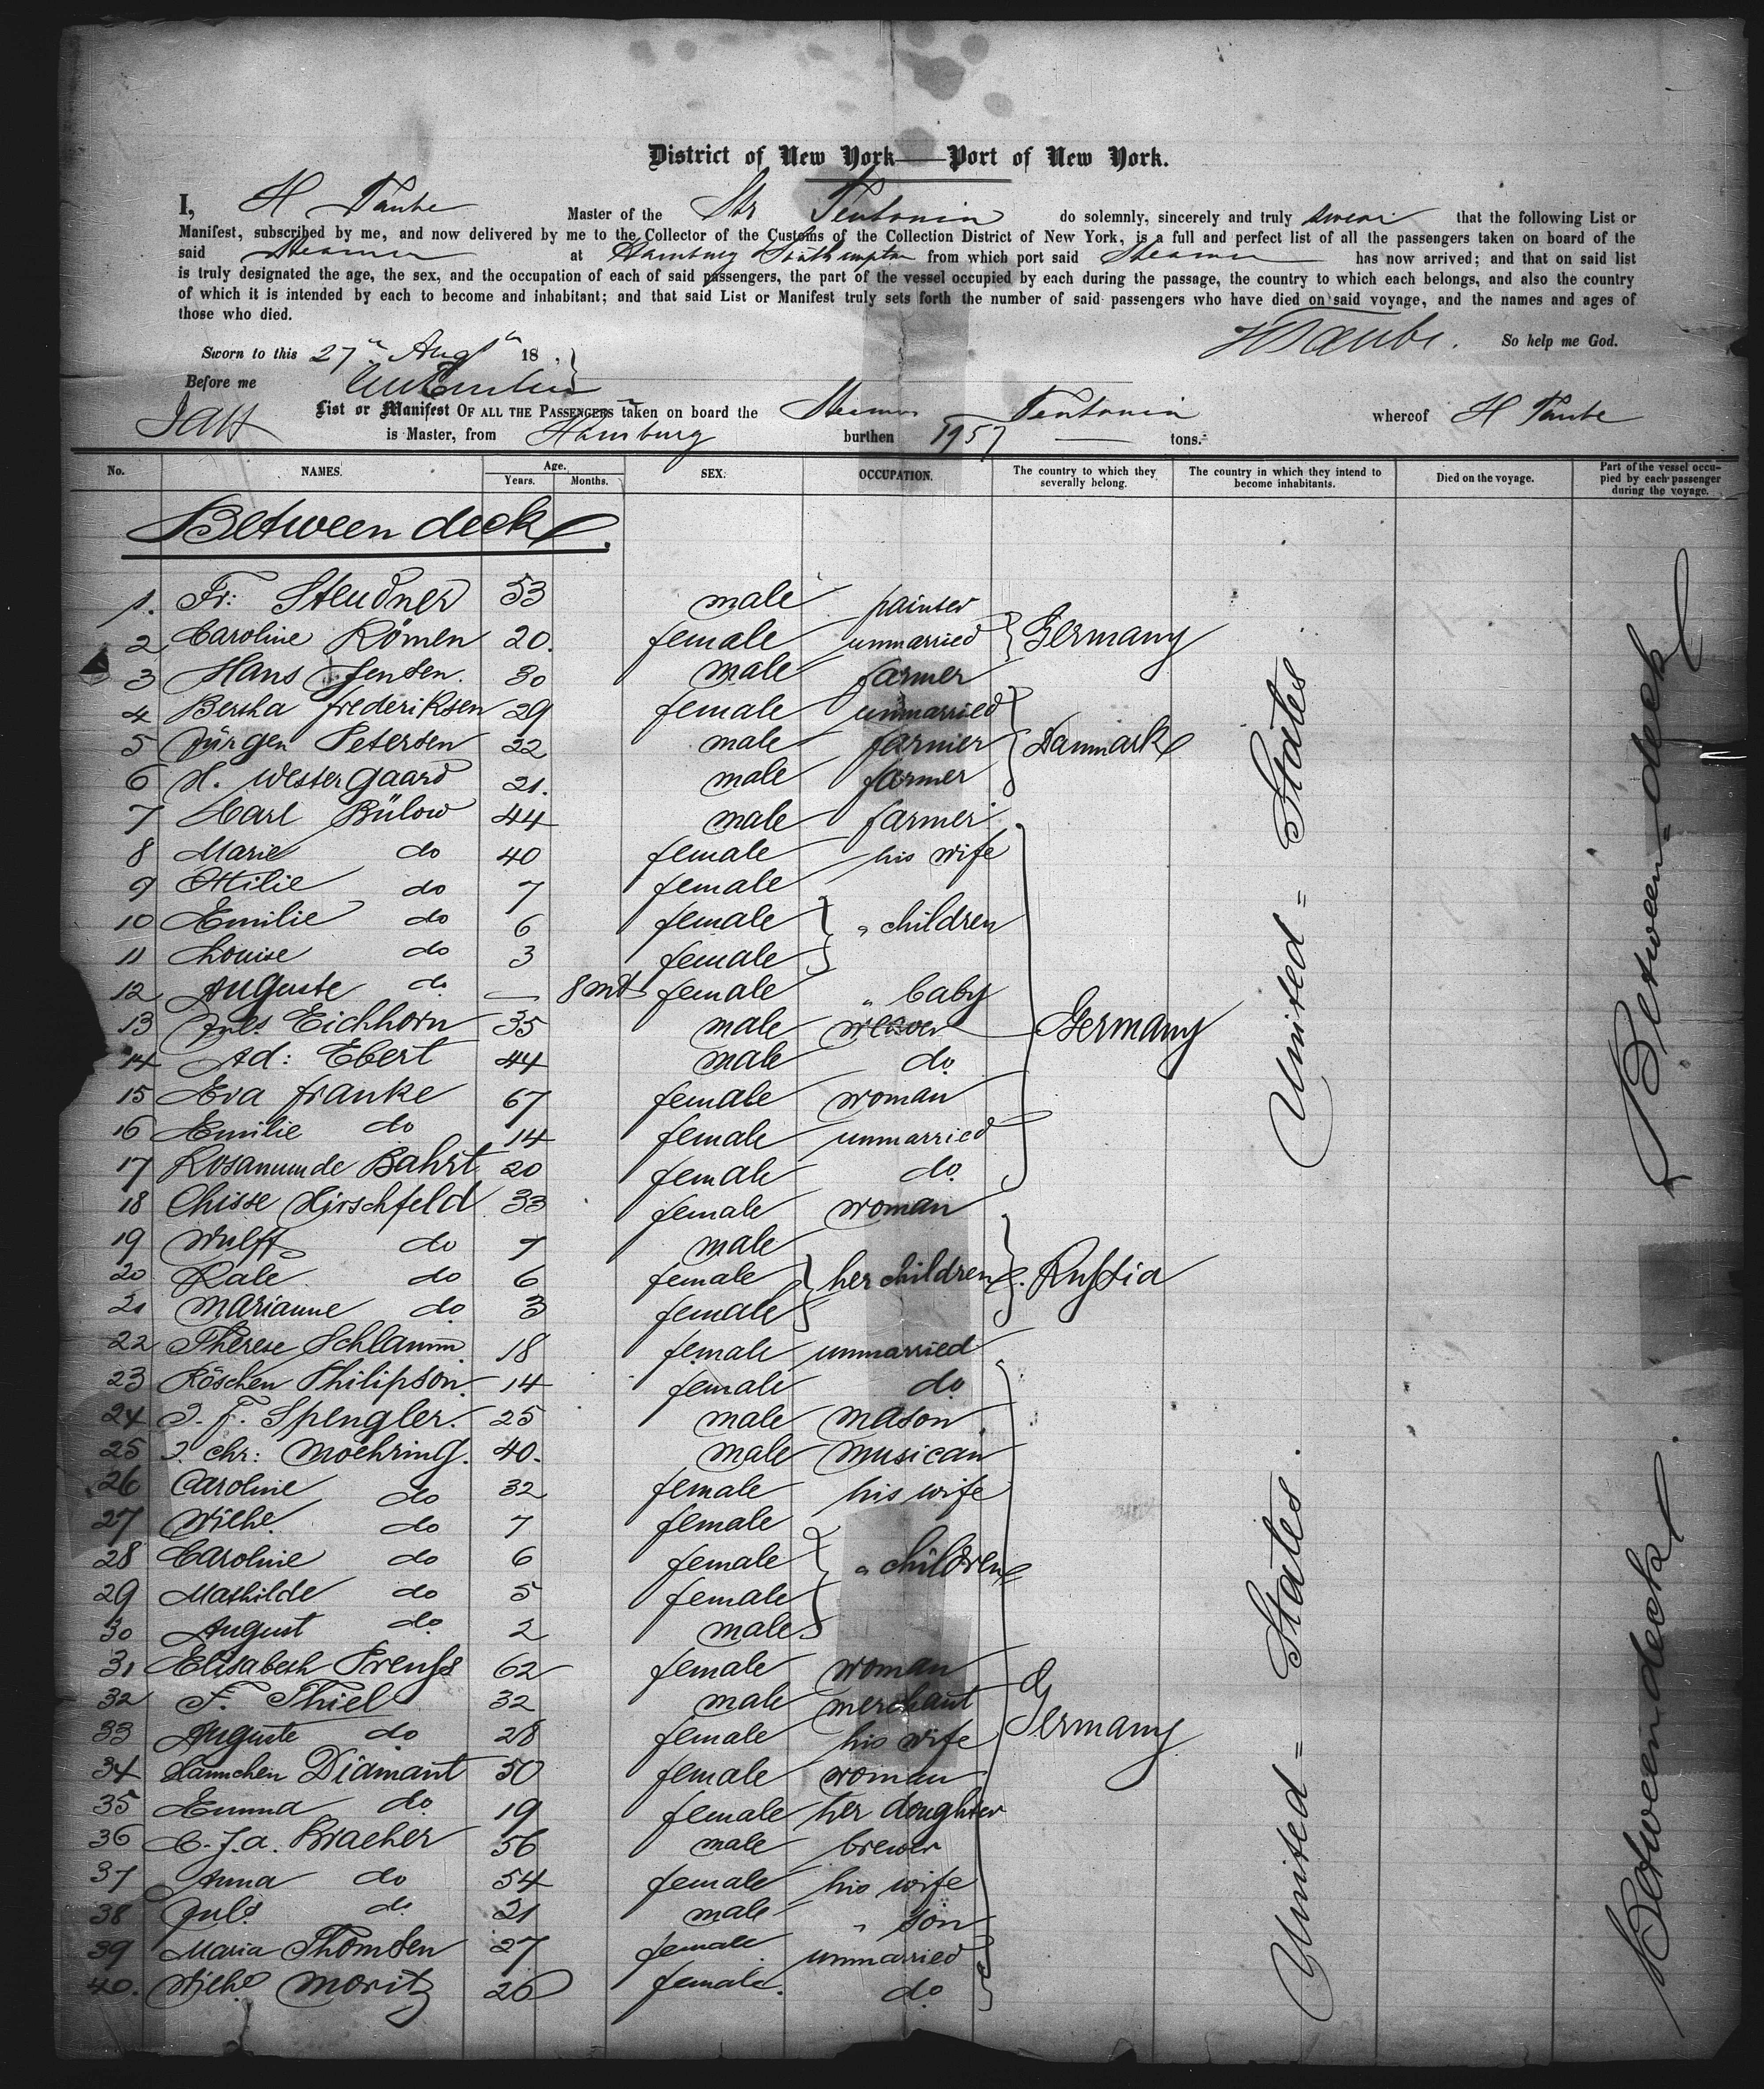 District of New York—Port of New York.
I, H Taube Master of the Str Teutonia do solemnly, sincerely and truly swear that the following List or
Manifest, subscribed by me, and now delivered by me to the Collector of the Customs of the Collection District of New York, is a full and perfect list of all the passengers taken on board of the
said Steamer at Hamburg Southampton from which port said Steamer has now arrived; and that on said list
is truly designated the age, the sex, and the occupation of each of said passengers, the part of the vessel occupied by each during the passage, the country to which each belongs, and also the country
of which it is intended by each to become and inhabitant; and that said List or Manifest truly sets forth the number of said passengers who have died on said voyage, and the names and ages of
those who died.
H Taube. So help me God.
Sworn to this 27th Augt 18
Before me
List or Manifest OF ALL THE PASSENGERS taken on board the Steamer Teutonia whereof H Taube
is Master, from Hamburg burthen 1957 tons.
No. NAMES. Age. Years. Months. SEX. OCCUPATION. The country to which they severally belong. The country in which they intend to become inhabitants. Died on the voyage. Part of the vessel occupied by each passenger during the voyage.
Between deck.
1. Fr: Steudner 53 male painter
2 Caroline Römen 20. female unmarried Germany
3 Hans Jensen. 30 male farmer
4 Bertha Frederiksen 29 female unmarried
5 Jürgen Petersen 22 male farmer Danmark
6 H. Westergaard 21. male farmer
7 Carl Bülow 44 male farmer
8 Marie do 40 female his wife
9 Ottilie do 7 female
10 Emilie do 6 female " children
11 Louise do 3 female
12 Auguste do — 8 mt female " baby
13 Juls Eichhorn 35 male weaver Germany
14 Ad: Ebert 44 male do
15 Eva Franke 67 female woman
16 Emilie do 14 female unmarried
17 Rosamunde Bahrt 20 female do
18 Chisse Hirschfeld 33 female woman
19 Wulff do 7 male
20 Rale do 6 female her children Russia
21 Marianne do 3 female
22 Therese Schlamm 18 female unmarried
23 Röschen Philipson 14 female do
24 J. F. Spengler. 25 male mason
25 J. Chr: Moehring. 40. male musican
26 Caroline do 32 female his wife
27 Wilhe. do 7 female
28 Caroline do 6 female " children
29 Mathilde do 5 female
30 August do 2 male
31 Elisabeth Preuss 62 female woman
32 F. Thiel 32 male merchant
33 Auguste do 28 female his wife Germany
34 Hannchen Diamant 50 female woman
35 Emma do 19 female her doughter
36 C. F. A. Bracher 56 male brewer
37 Anna do 54 female his wife
38 Juls do 21 male " son
39 Maria Thomsen 27 female unmarried
40. Wilhe Moritz 26 female. do
United = States
Between = deck
United = States
Between deck